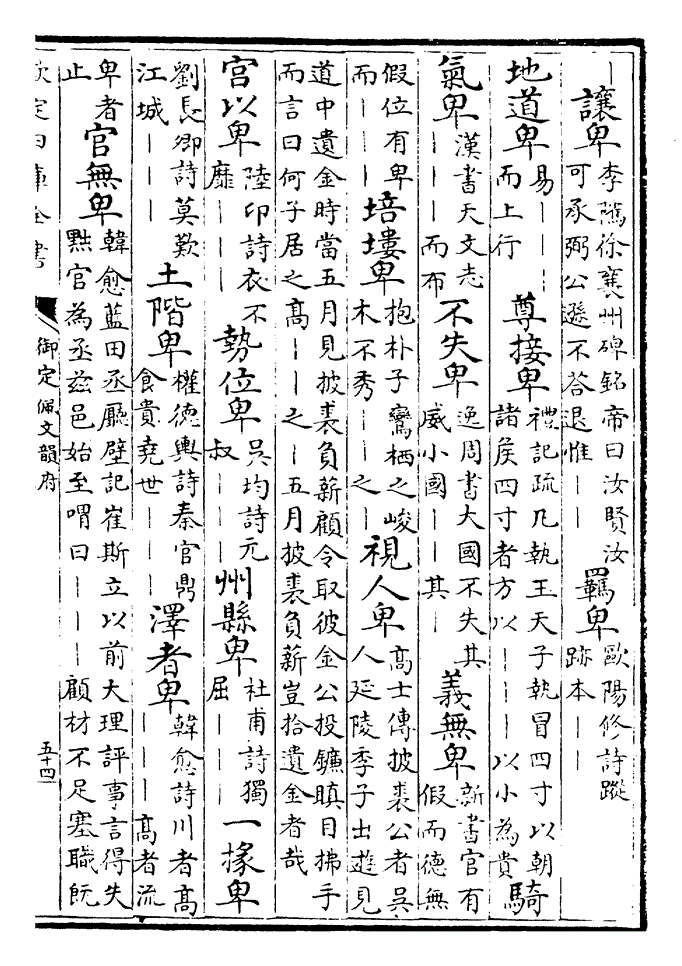 ｜讓卑 李隲徐襄州碑銘帝曰汝賢汝可承弼公遜不答退惟｜｜ 羈卑 歐陽修詩蹤跡本｜｜
地道卑 易｜｜｜而上行 尊接卑 禮記疏凡執王天子執冒四寸以朝諸侯四寸者方以｜｜｜以小為貴 騎
氣卑 漢書天文志｜｜｜而布 不失卑 逸周書大國不失其威小國｜｜其｜ 義無卑 新書官有假而德無
假位有卑而｜｜｜ 培塿卑 抱朴子鸞栖之峻木不秀｜｜之｜ 視人卑 高士傳披裘公者吳人延陵季子出遊見
道中遺金時當五月見披裘負薪顧令取彼金公投鐮瞋目拂手而言曰何子居之高｜｜之｜五月披裘負薪豈拾遺金者哉
宮以卑 陸印詩衣不靡｜｜｜ 勢位卑 吳均詩元叔｜｜｜ 州縣卑 杜甫詩獨屈｜｜｜ 一掾卑
劉長卿詩莫歎江城｜｜｜ 土階卑 權德輿詩秦官鼎食貴堯世｜｜｜ 澤者卑 韓愈詩川者高｜｜｜高者流
卑者止 官無卑 韓愈藍田丞廳壁記崔斯立以前大理評事言得失黜官為丞茲邑始至喟曰｜｜｜顧材不足塞職既
欽定四庫全書 御定佩文韻府 五十四